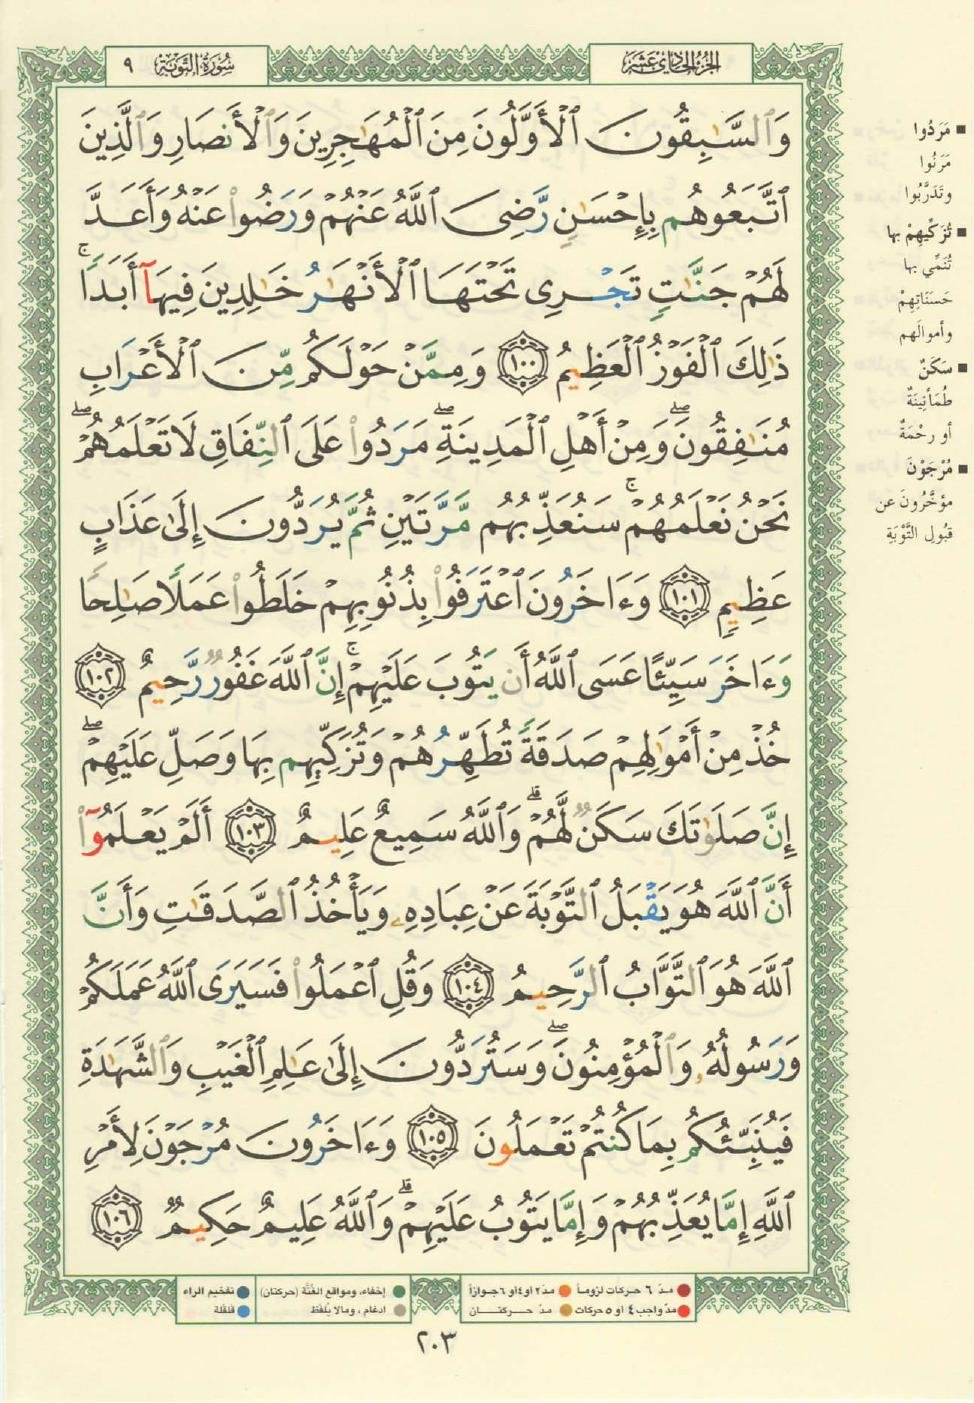 الجزء الحادي عشر
سورة التوبة ٩
وَٱلسَّٰبِقُونَ ٱلْأَوَّلُونَ مِنَ ٱلْمُهَٰجِرِينَ وَٱلْأَنصَارِ وَٱلَّذِينَ
ٱتَّبَعُوهُم بِإِحْسَٰنٍ رَّضِىَ ٱللَّهُ عَنْهُمْ وَرَضُوا۟ عَنْهُ وَأَعَدَّ
لَهُمْ جَنَّٰتٍ تَجْرِى تَحْتَهَا ٱلْأَنْهَٰرُ خَٰلِدِينَ فِيهَآ أَبَدًا ۚ
ذَٰلِكَ ٱلْفَوْزُ ٱلْعَظِيمُ ١٠٠ وَمِمَّنْ حَوْلَكُم مِّنَ ٱلْأَعْرَابِ
مُنَٰفِقُونَ ۖ وَمِنْ أَهْلِ ٱلْمَدِينَةِ ۖ مَرَدُوا۟ عَلَى ٱلنِّفَاقِ لَا تَعْلَمُهُمْ ۖ
نَحْنُ نَعْلَمُهُمْ ۚ سَنُعَذِّبُهُم مَّرَّتَيْنِ ثُمَّ يُرَدُّونَ إِلَىٰ عَذَابٍ
عَظِيمٍ ١٠١ وَءَاخَرُونَ ٱعْتَرَفُوا۟ بِذُنُوبِهِمْ خَلَطُوا۟ عَمَلًا صَٰلِحًا
وَءَاخَرَ سَيِّئًا عَسَى ٱللَّهُ أَن يَتُوبَ عَلَيْهِمْ ۚ إِنَّ ٱللَّهَ غَفُورٌ رَّحِيمٌ ١٠٢
خُذْ مِنْ أَمْوَٰلِهِمْ صَدَقَةً تُطَهِّرُهُمْ وَتُزَكِّيهِم بِهَا وَصَلِّ عَلَيْهِمْ ۖ
إِنَّ صَلَوٰتَكَ سَكَنٌ لَّهُمْ ۗ وَٱللَّهُ سَمِيعٌ عَلِيمٌ ١٠٣ أَلَمْ يَعْلَمُوٓا۟
أَنَّ ٱللَّهَ هُوَ يَقْبَلُ ٱلتَّوْبَةَ عَنْ عِبَادِهِۦ وَيَأْخُذُ ٱلصَّدَقَٰتِ وَأَنَّ
ٱللَّهَ هُوَ ٱلتَّوَّابُ ٱلرَّحِيمُ ١٠٤ وَقُلِ ٱعْمَلُوا۟ فَسَيَرَى ٱللَّهُ عَمَلَكُمْ
وَرَسُولُهُۥ وَٱلْمُؤْمِنُونَ ۖ وَسَتُرَدُّونَ إِلَىٰ عَٰلِمِ ٱلْغَيْبِ وَٱلشَّهَٰدَةِ
فَيُنَبِّئُكُم بِمَا كُنتُمْ تَعْمَلُونَ ١٠٥ وَءَاخَرُونَ مُرْجَوْنَ لِأَمْرِ
ٱللَّهِ إِمَّا يُعَذِّبُهُمْ وَإِمَّا يَتُوبُ عَلَيْهِمْ ۗ وَٱللَّهُ عَلِيمٌ حَكِيمٌ ١٠٦
■ مَرَدُوا
مَرَنُوا
وتَدَرَّبُوا
■ تُزَكِّيهِمْ بها
تُنَمِّي بها
حَسَنَاتِهِمْ
وأموالَهم
■ سَكَنٌ
طُمَأْنِينَةٌ
أو رحْمَةٌ
■ مُرْجَوْنَ
مؤخَّرُونَ عن
قبُولِ التَّوْبَةِ
مدّ ٦ حركات لزوماً ● مدّ ٢ أو ٤ أو ٦ جوازاً
مدّ واجب ٤ أو ٥ حركات ● مدّ حركتان
إخفاء، ومواقع الغُنَّة (حركتان)
ادغام، ومالا يُلفَظ
تفخيم الراء
قلقلة
٢٠٣